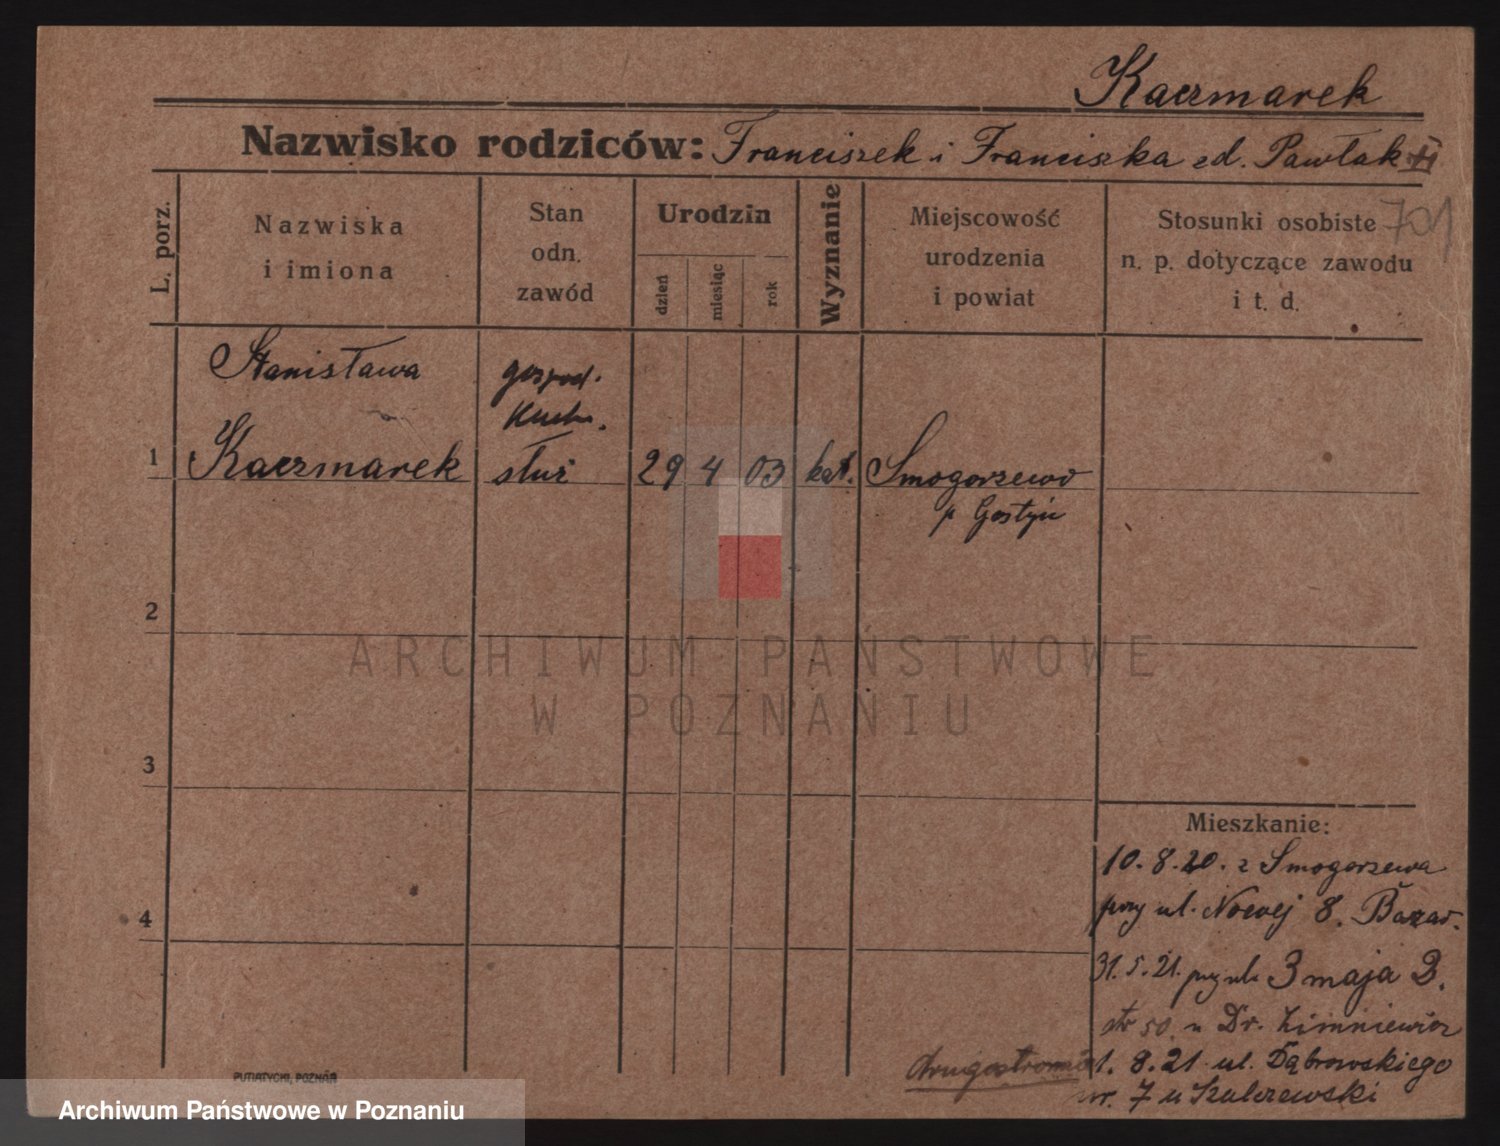 Kaczmarek
Nazwisko rodziców: Franciszek i Franciszka zd. Pawlak
701
L. porz.
Nazwiska
i imiona
Stan
odn.
zawód
Urodzin
dzień
miesiąc
rok
Wyznanie
Miejscowość
urodzenia
i powiat
Stosunki osobiste
n. p. dotyczące zawodu
i t. d.
Stanisława
gospod.
Kuch.
1 Kaczmarek służ 29 4 03 kat. Smogorzewo
p Gostyń
2
ARCHIWUM PAŃSTWOWE
W POZNANIU
3
Mieszkanie:
10.8.20. z Smogorzewa
przy ul. Nowej 8. Bazar.
4
31.5.21. przy ul. 3 maja 3.
str 50 u Dr. Zimniewicz
drugostronnie 1. 8.21 ul. Dąbrowskiego
nr. 7 u Szulczewski
PUTIATYCKI, POZNAŃ
Archiwum Państwowe w Poznaniu